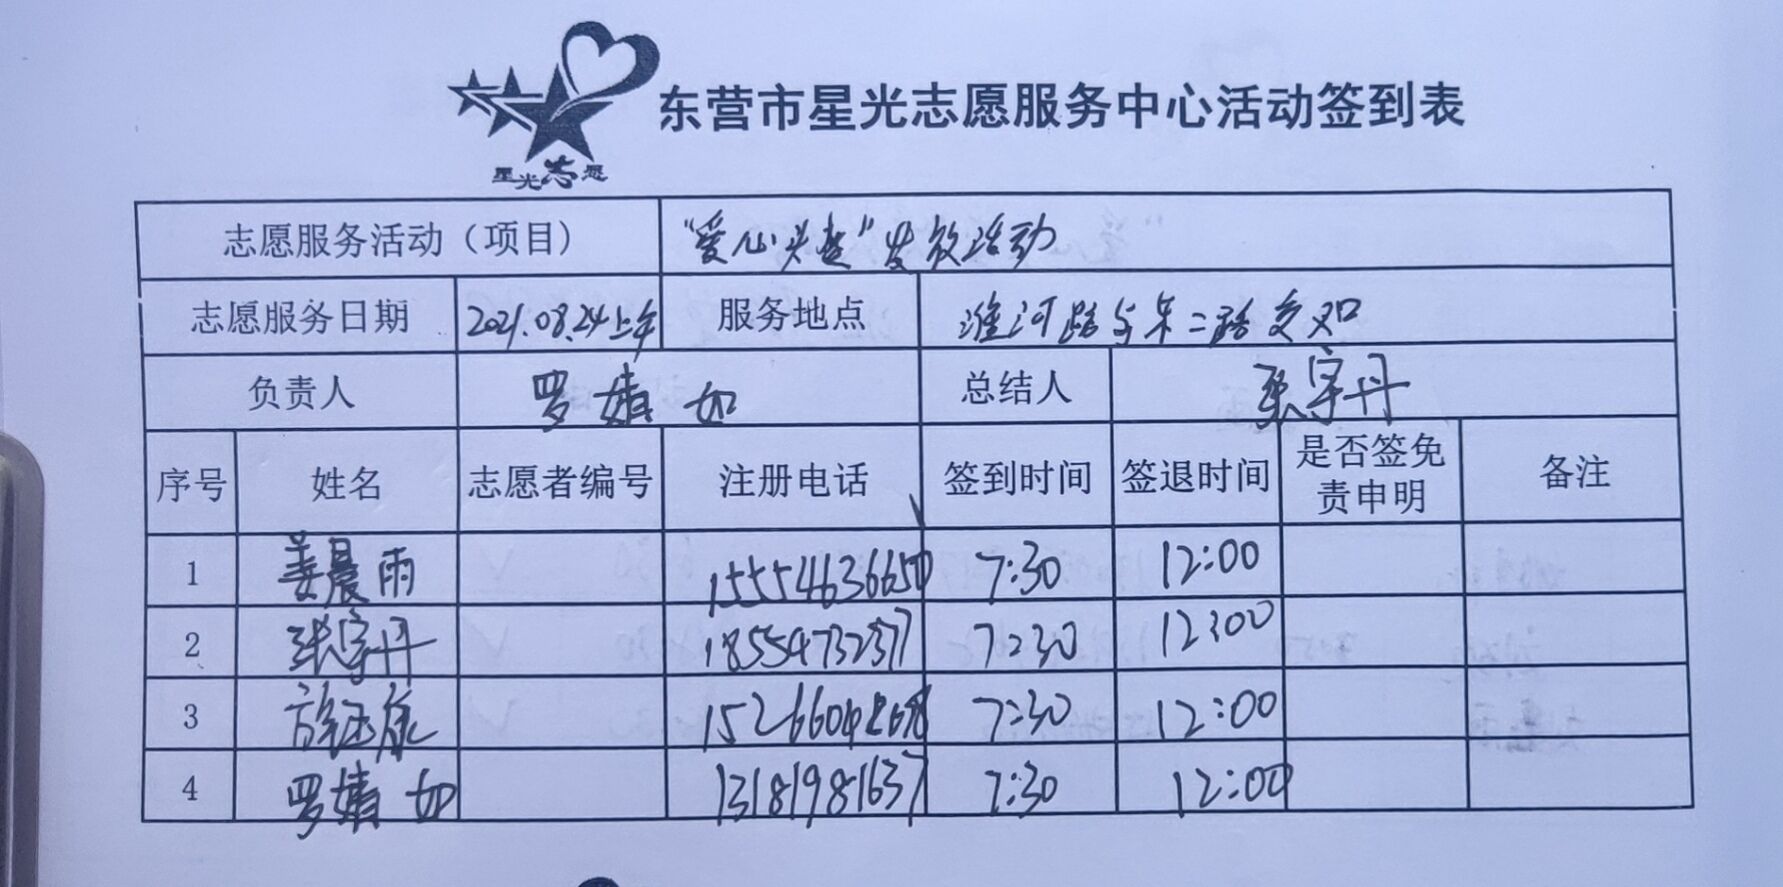 星光志愿
东营市星光志愿服务中心活动签到表
志愿服务活动（项目） “爱心头盔”发放活动
志愿服务日期 2021.08.24上午 服务地点 淮河路与东二路交叉口
负责人 罗婧如 总结人 张宇丹
序号 姓名 志愿者编号 注册电话 签到时间 签退时间 是否签免责申明 备注
1 姜晨雨 15554636650 7:30 12:00
2 张宇丹 18554732377 7:30 12:00
3 7:30 12:00
4 罗婧如 13181981637 7:30 12:00